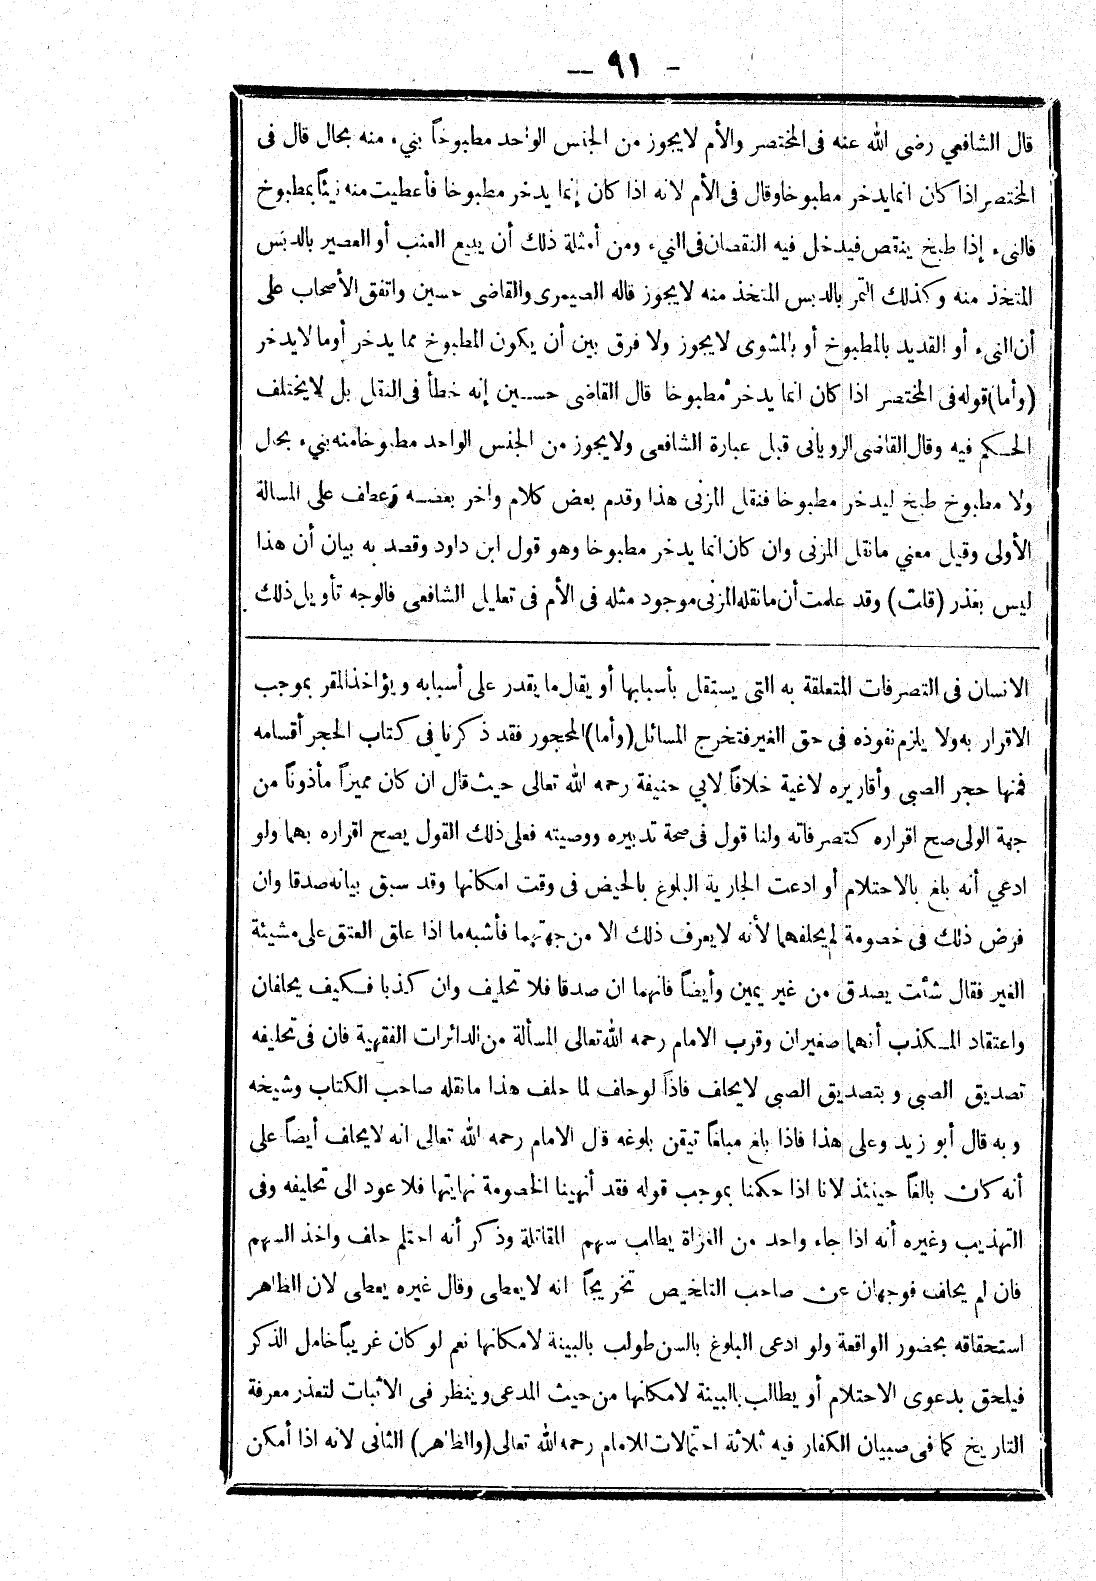 — ٩١ –
قال الشافعي رضى الله عنه فى المختصر والأم لا يجوز من الجنس الواحد مطبوخاً بنيء منه بحال قال فى
المختصر اذا كان انما يدخر مطبوخا وقال فى الأم لانه اذا كان إنما يدخر مطبوخا فأعطيت منه نيئاً بمطبوخ
فالنىء إذا طبخ ينقص فيدخل فيه النقصان فى النىء ومن أمثلة ذلك أن يبيع العنب أو العصير بالدبس
المتخذ منه وكذلك التمر بالدبس المتخذ منه لا يجوز قاله الصيمرى والقاضى حسين واتفق الأصحاب على
أن النىء أو القديد بالمطبوخ أو بالمشوى لا يجوز ولا فرق بين أن يكون المطبوخ مما يدخر أوما لا يدخر
(وأما) قوله فى المختصر اذا كان انما يدخر مطبوخا قال القاضى حسين إنه خطأ فى النقل بل لا يختلف
الحكم فيه وقال القاضى الرويانى قبل عبارة الشافعى ولا يجوز من الجنس الواحد مطبوخا منه بنيء بحال
ولا مطبوخ طبخ ليدخر مطبوخا فنقل المزنى هذا وقدم بعض كلام واخر بعضه وعطف على المسالة
الأولى وقيل معني ما نقل المزنى وان كان انما يدخر مطبوخا وهو قول ابن داود وقصد به بيان أن هذا
ليس بعذر (قلت) وقد علمت أن ما نقله المزنى موجود مثله فى الأم فى تعليل الشافعى فالوجه تأويل ذلك
الانسان فى التصرفات المتعلقة به التى يستقل بأسبابها أو يقال ما يقدر على أسبابه ويؤاخذ المقر بموجب
الاقرار به ولا يلزم نفوذه فى حق الغير فتخرج المسائل (وأما) المحجور فقد ذكرنا فى كتاب الحجر أقسامه
فمنها حجر الصبى وأقاريره لاغية خلافاً لابي حنيفة رحمه الله تعالى حيث قال ان كان مميزاً مأذوناً من
جهة الولى صح اقراره كتصرفاته ولنا قول فى صحة تدبيره ووصيته فعلى ذلك القول يصح اقراره بهما ولو
ادعي أنه بلغ بالاحتلام أو ادعت الجارية البلوغ بالحيض فى وقت امكانها وقد سبق بيانه صدقا وان
فرض ذلك فى خصومة لم يحلفهما لأنه لا يعرف ذلك الا من جهتهما فأشبه ما اذا علق العتق على مشيئة
الغير فقال شئت يصدق من غير يمين وأيضاً فانهما ان صدقا فلا تحليف وان كذبا فكيف يحلفان
واعتقاد المكذب أنهما صغيران وقرب الامام رحمه الله تعالى المسألة من الدائرات الفقهية فان فى تحليفه
تصديق الصبى و بتصديق الصبى لا يحلف فاذاً لو حلف لما حلف هذا ما نقله صاحب الكتاب وشيخه
و به قال أبو زيد وعلى هذا فاذا بلغ مبلغاً تيقن بلوغه قال الامام رحمه الله تعالى انه لا يحلف أيضاً على
أنه كان بالغاً حينئذ لانا اذا حكمنا بموجب قوله فقد أنهينا الخصومة نهايتها فلا عود الى تحليفه وفى
التهذيب وغيره أنه اذا جاء واحد من الغزاة يطلب سهم المقاتلة وذكر أنه احتلم حلف واخذ السهم
فان لم يحلف فوجهان عن صاحب التلخيص تخريجاً انه لا يعطى وقال غيره يعطى لان الظاهر
استحقاقه بحضور الواقعة ولو ادعى البلوغ بالسن طولب بالبينة لامكانها نعم لو كان غريباً خامل الذكر
فيلحق بدعوى الاحتلام أو يطالب بالبينة لامكانها من حيث المدعى وينظر فى الاثبات لتعذر معرفة
التاريخ كما فى صبيان الكفار فيه ثلاثة احتمالات للامام رحمه الله تعالى (والظاهر) الثانى لانه اذا أمكن